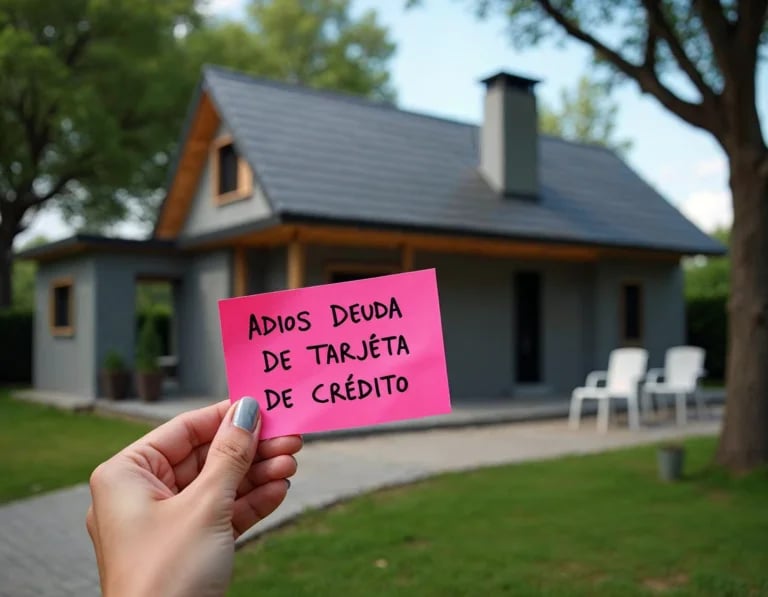 ADIOS DEUDA
DE TARJÉTA
DE CRÉDITO